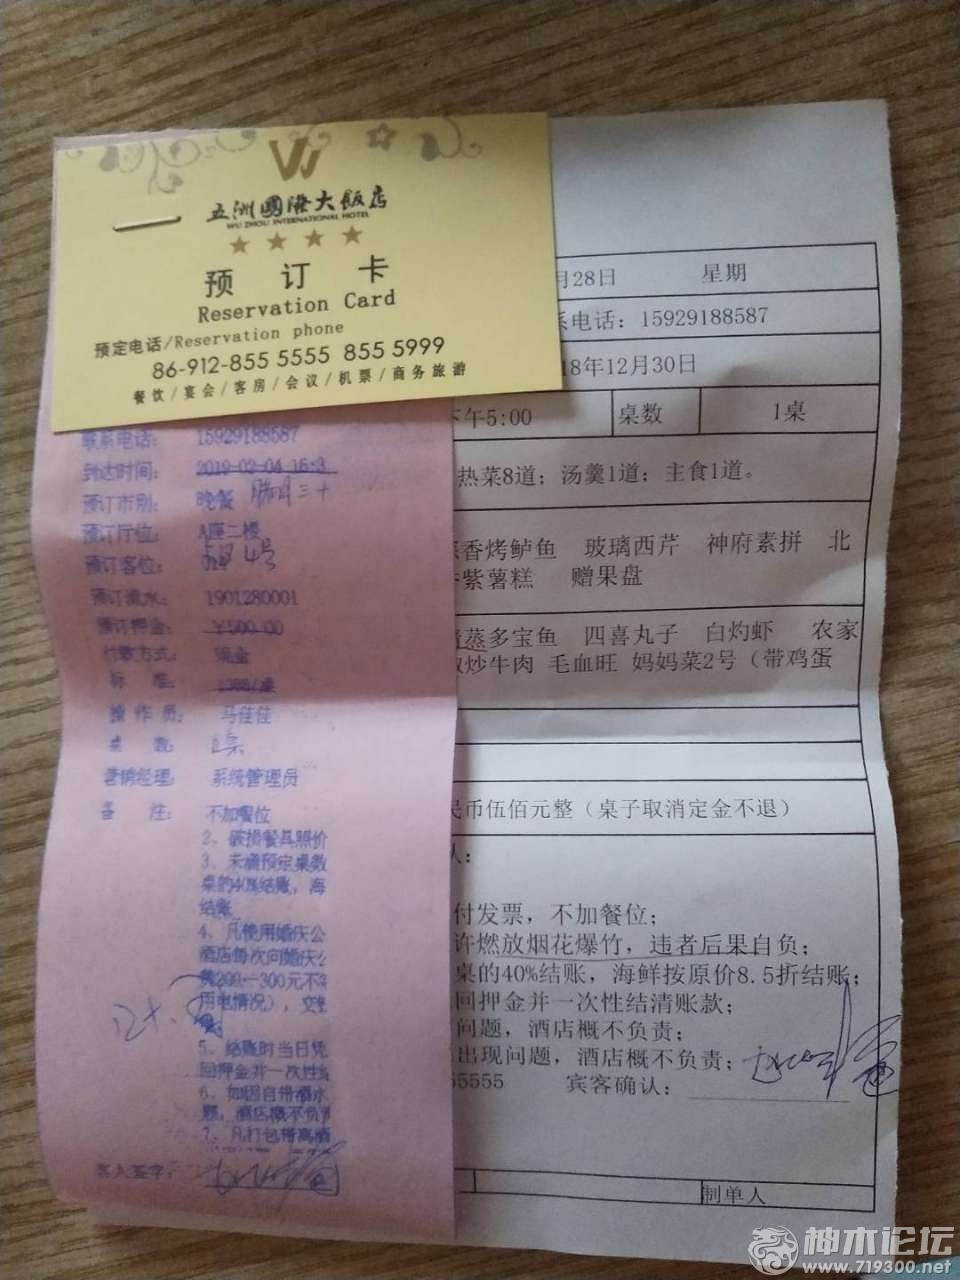 五洲國際大飯店
WU ZHOU INTERNATIONAL HOTEL
预订卡
Reservation Card
预定电话/Reservation phone
86-912-855 5555 855 5999
餐饮/宴会/客房/会议/机票/商务旅游
联系电话: 15929188587
到达时间: 2019-02-04 16:3
预订市别: 晚餐 腊月三十
预订厅位: A座二楼
预订客位: 4号
预订流水: 1901280001
预订押金: ¥500.00
付款方式: 现金
标 准: 1388/桌
操作员: 马佳佳
桌 数:
营销经理: 系统管理员
备 注: 不加餐位
2、破损餐具照价
3、未满预定桌数
桌的40%结账,海
结账
4、凡使用婚庆公
酒店每次向婚庆公
200-300元不
用电情况),交
5、结账时当日凭
回押金并一次性结
6、如因自带酒水
题,酒店概不负
7、凡打包带离酒
客人签字:
月28日 星期
系电话:15929188587
18年12月30日
下午5:00 桌数 1桌
热菜8道;汤羹1道;主食1道。
香烤鲈鱼 玻璃西芹 神府素拼 北
紫薯糕 赠果盘
清蒸多宝鱼 四喜丸子 白灼虾 农家
炒牛肉 毛血旺 妈妈菜2号(带鸡蛋
民币伍佰元整(桌子取消定金不退)
人:
付发票,不加餐位;
许燃放烟花爆竹,违者后果自负;
桌的40%结账,海鲜按原价8.5折结账;
回押金并一次性结清账款;
问题,酒店概不负责;
出现问题,酒店概不负责;
55555 宾客确认:
制单人
神木论坛
www.719300.net